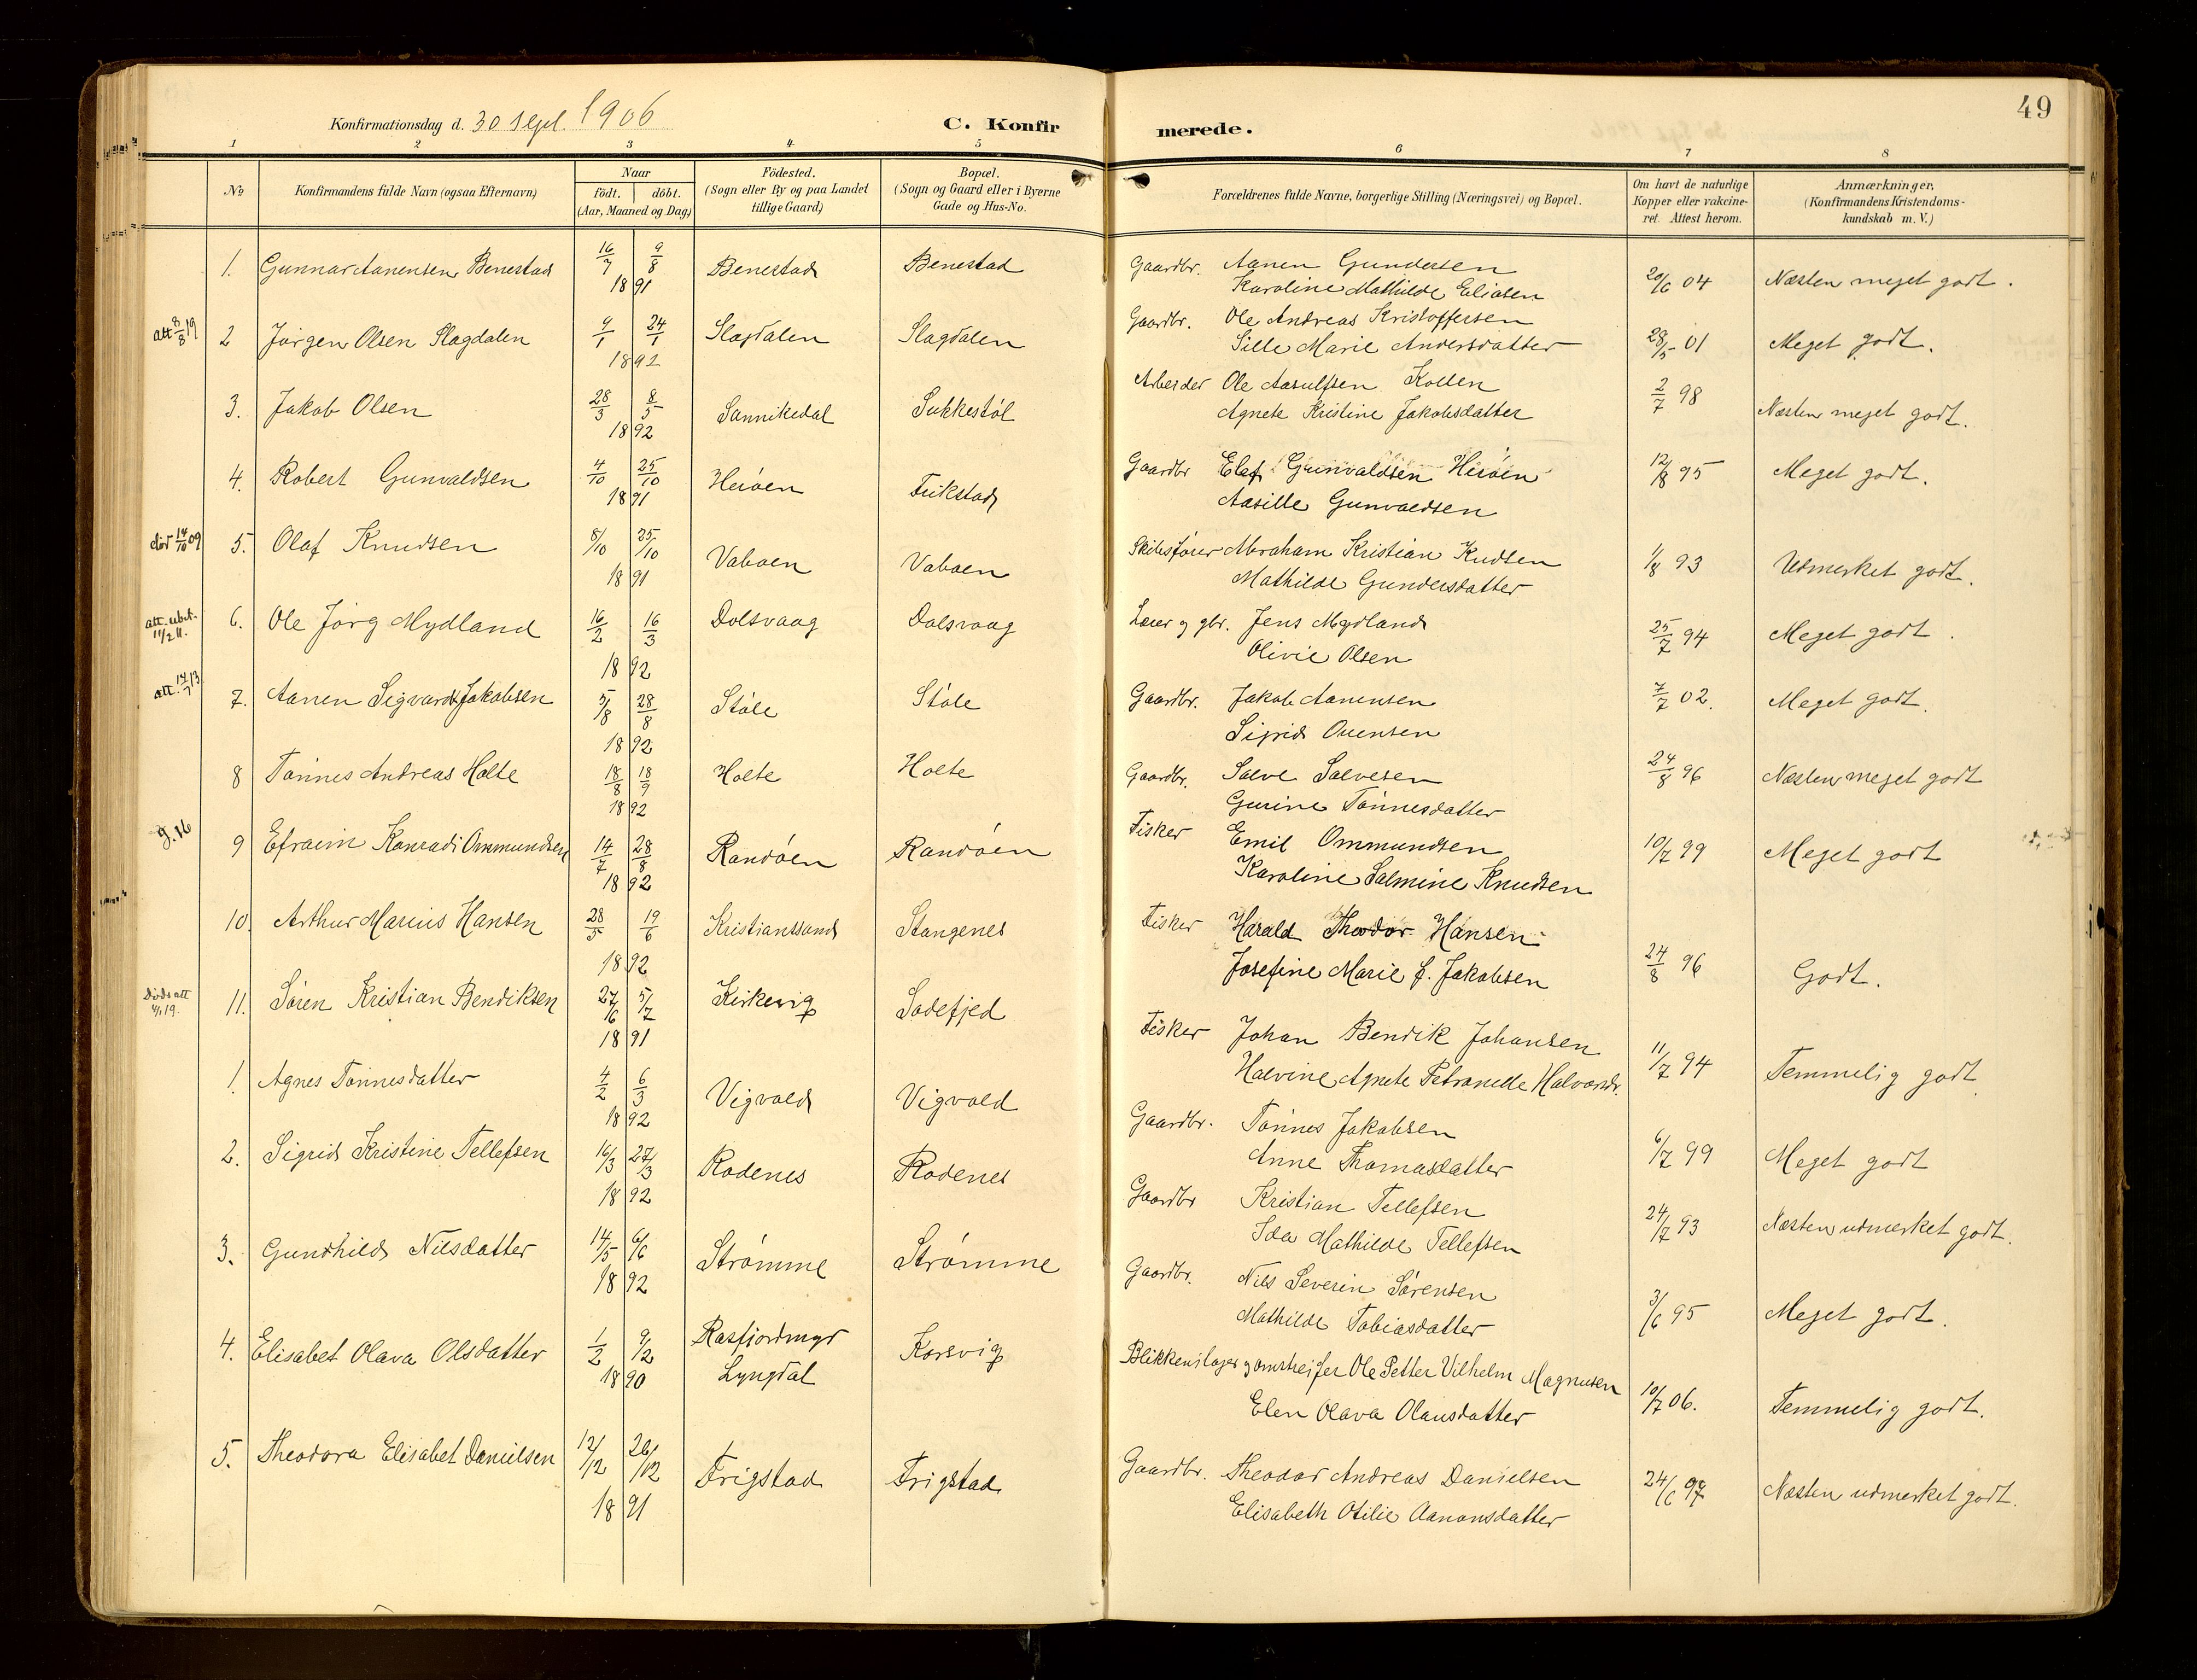 49
Konfirmationsdag d. 30 Sept. 1906
C. Konfirmerede.
1 2 3 4 5 6 7 8
No
Konfirmandens fulde Navn (ogsaa Efternavn)
Naar
født. døbt.
(Aar, Maaned og Dag)
Fødested.
(Sogn eller By og paa Landet
tillige Gaard)
Bopæl.
(Sogn og Gaard eller i Byerne
Gade og Hus-No.
Forældrenes fulde Navne, borgerlige Stilling (Næringsvei) og Bopæl.
Om havt de naturlige
Kopper eller vakcine-
ret. Attest herom.
Anmærkninger.
(Konfirmandens Kristendoms-
kundskab m. V.)
1. Gunnar Aanensen Benestad 16/7 9/8 1891 Benestad Benestad Gaardbr. Aanen Gundersen 20/6 04 Næsten meget godt.
Karoline Mathilde Eliasen
att 8/8 19 2 Jørgen Olsen Slagdalen 9/1 24/1 1892 Slagdalen Slagdalen Gaardbr. Ole Andreas Kristoffersen 28/5 01 Meget godt.
Sille Marie Andersdatter
3. Jakob Olsen 28/3 8/5 1892 Sannikedal Sukkestøl Arbeider Ole Aasulfsen Kollen 2/7 98 Næsten meget godt.
Agnete Kristine Jakobsdatter
4. Robert Gunvaldsen 4/10 25/10 1891 Herøen Frikstad Gaardbr Elef Gunvaldsen Herøen 12/8 95 Meget godt.
Aasille Gunvaldsen
død 14/10 09 5. Olaf Knudsen 8/10 25/10 1891 Vaboen Vaboen Skibsfører Abraham Kristian Kudsen 1/8 93 Udmerket godt.
Mathilde Gundersdatter
att. ubet. 11/2 11. 6. Ole Jørg Mydland 16/2 16/3 1892 Dolsvaag Dolsvaag Lærer og gbr. Jens Mydland 25/7 94 Meget godt.
Olivie Olsen
att. 14/7 13 7. Aanen Sigvard Jakobsen 5/8 28/8 1892 Støle Støle Gaardbr. Jakob Aanensen 7/7 02. Meget godt.
Sigrid Ouensen
8 Tønnes Andreas Holte 18/8 18/9 1892 Holte Holte Gaardbr. Salve Salvesen 24/8 96 Næsten meget godt
Gurine Tønnesdatter
g. 16 9 Efraim Konradi Ommundsen 14/7 28/8 1892 Randøen Randøen Fisker Emil Ommundsen 10/7 99 Meget godt
Karoline Salmine Knudsen
10. Arthur Marius Hansen 28/5 19/6 1892 Kristianssand Stangenes Fisker Harald Theodor Hansen 24/8 96 Godt.
Josefine Marie f. Jakobsen
Dødsatt 19. 11. Søren Kristian Bendiksen 27/6 5/7 1891 Kirkevig Sodefjed Fisker Johan Bendik Johansen 11/7 94 Temmelig godt
Halvine Agnete Petranelle Halvorsdr.
1. Agnes Tønnesdatter 4/2 6/3 1892 Vigvold Vigvold Gaardbr. Tønnes Jakobsen 6/7 99 Meget godt
Anne Thomasdatter
2. Sigrid Kristine Tellefsen 16/3 27/3 1892 Rodenes Rodenes Gaardbr Kristian Tellefsen 24/7 93 Næsten udmerket godt.
Ida Mathilde Tellefsen
3. Gundhild Nilsdatter 14/5 6/6 1892 Strømme Strømme Gaardbr. Nils Severin Sørensen 3/6 95 Meget godt.
Mathilde Tobiasdatter
4. Elisabet Olava Olsdatter 1/2 9/2 1890 Rasfjordmyr Korsvig Blikkenslager og omstreifer Ole Petter Vilhelm Magnusen 10/7 06. Temmelig godt.
Lyngdal Elen Olava Olausdatter
5. Theodora Elisabet Danielsen 12/12 26/12 1891 Frigstad Frigstad Gaardbr. Theodor Andreas Danielsen 24/6 97 Næsten udmerket godt.
Elisabeth Otilie Aanonsdatter